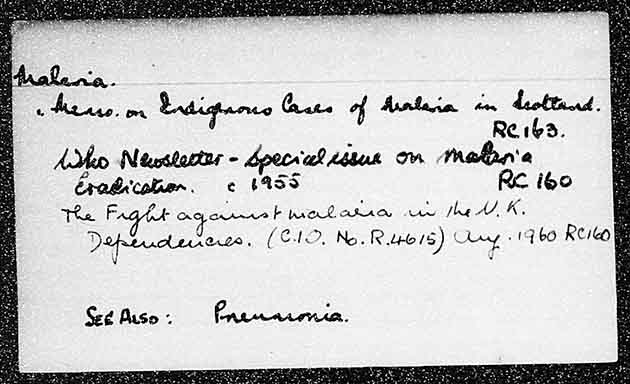 Malaria.
Memo. on Indigenous Cases of Malaria in Scotland.
RC163.
Who Newsletter - Special issue on malaria
Eradication. c 1955 RC 160
The Fight against malaria in the U.K.
Dependencies. (C.I.O. No. R.4615) Aug. 1960 RC160
SEE ALSO: Pneumonia.